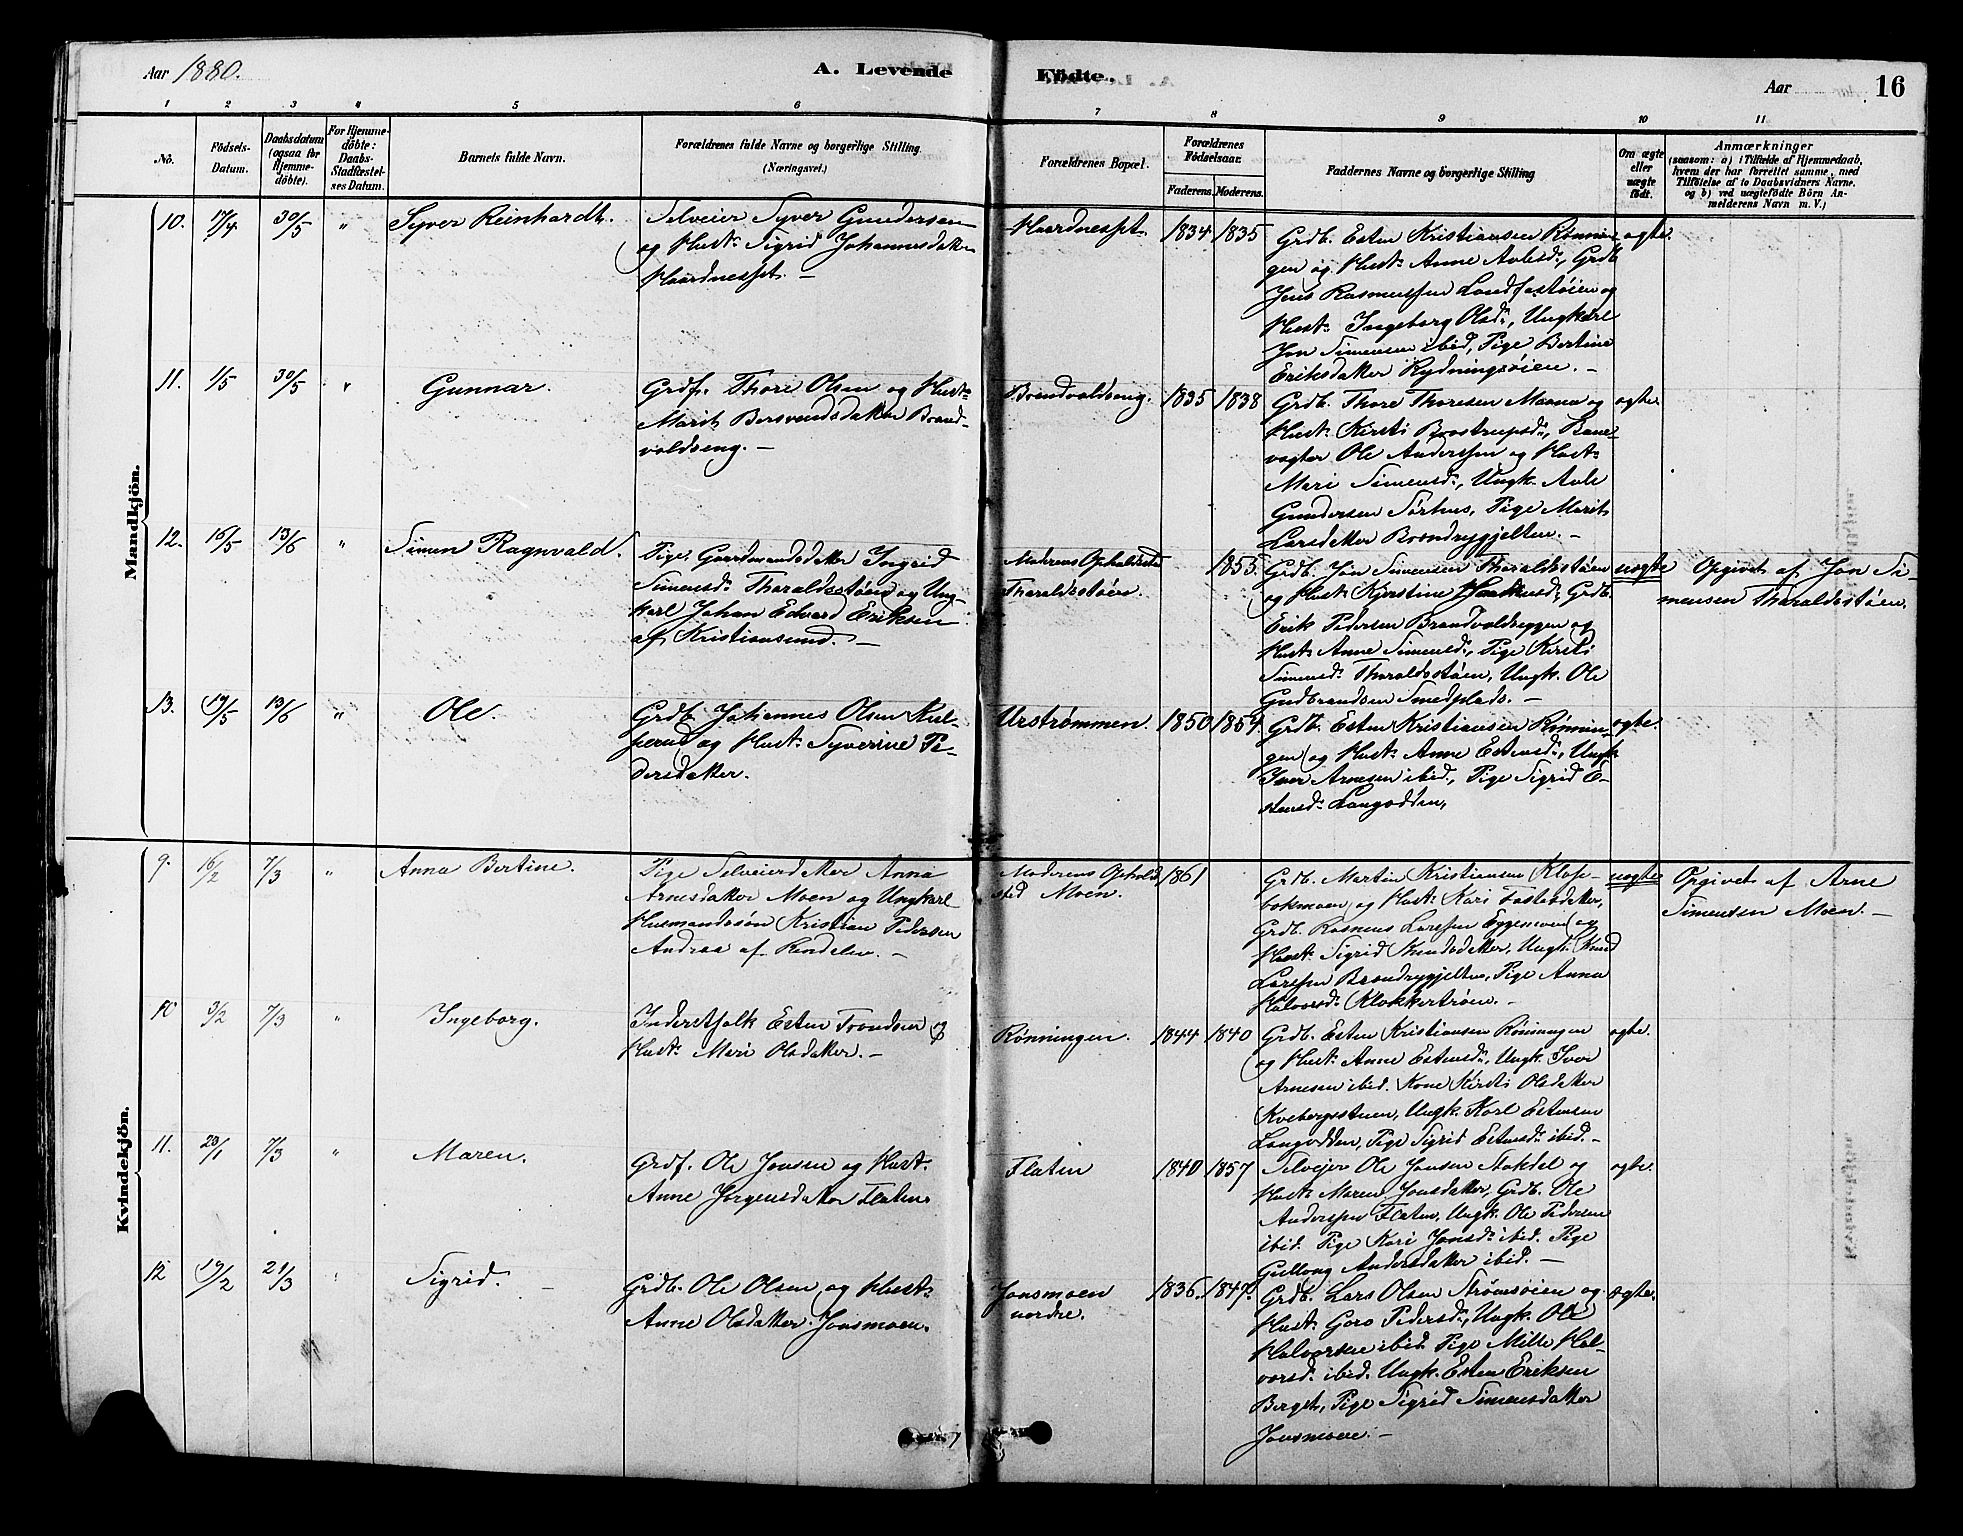 Aar 1880.
A. Levende Födte.
Aar
16
1 2 3 4 5 6 7 8 9 10 11
No.
Födsels-
Datum.
Daabsdatum
(ogsaa for
Hjemme-
döbte).
For Hjemme-
döbte:
Daabs-
Stadfæstel-
ses Datum.
Barnets fulde Navn.
Forældrenes fulde Navne og borgerlige Stilling.
(Næringsvei.)
Forældrenes Bopæl.
Forældrenes
Födselsaar.
Faderens. Moderens.
Faddernes Navne og borgerlige Stilling
Om ægte
eller
uægte
födt.
Anmærkninger
(saasom: a) i Tilfælde af Hjemmedaab,
hvem der har forrettet samme, med
Tilföielse af to Daabsvidners Navne.
og b) ved uægtefödte Börn An-
melderens Navn m. V.)
Mandkjön.
10. 17/4 30/5 " Syver Reinhardt.
Selveier Syver Gundersen
og Hust: Sigrid Johannesdatter
Haardnesset. —
Haardnesset. 1834 1835
Grdb. Esten Kristiansen Rønnin-
gen og Hust: Anne Avlesd:, Grdb.
Jens Rasmussen Landfastøien og
Hust: Ingeborg Olsd:, Ungkarl
Jon Simensen ibid, Pige Bertine
Eriksdatter Rydningsøien. —
ægte.
11. 1/5 30/5 " Gunnar.
Grdf. Thore Olsen og Hust:
Marit Bersvendsdatter Brand-
voldseng. —
Brandvoldseng. 1835 1838
Grdb. Thore Thoresen Maana og
Hust: Kirsti Baastrupsd:, Bane-
vogter Ole Anderssen og Hust:
Mari Simensd:, Ungk. Avle
Gundersen Sørhus, Pige Marit
Larsdatter Brondryggjelten. —
ægte.
12. 16/5 13/6 " Simen Ragnvald.
Pige Gaardmandsdatter Ingrid
Simensd: Tharaldsstøen og Ung-
karl Johan Edvard Eriksen
af Kristiansund. —
Moderens Opholdssted
Tharaldsstøen. 1855.
Grdb. Jon Simensen Tharaldsstøen
og Hust: Kjerstine Haaknsd: Grdb.
Erik Pedersen Brandvoldryggen og
Hust: Anne Simensd:, Pige Kirsti
Simensd: Tharaldsstøen, Ungk. Ole
Gudbrandsen Smedplads. —
uægte
Opgivet af Jon Si-
mensen Tharaldsstøen.
13. 19/5 13/6 " Ole.
Grdb. Johannes Olsen Kul-
perud og Hust: Syverine Pe-
dersdatter.
Urstrømmen. 1850 1854.
Grdb. Esten Kristiansen Rønnin-
gen og Hust: Anne Estensd:, Ungk.
Iver Arnesen ibid., Pige Sigrid E-
stensd: Langodden,
ægte.
Kvindekjön.
9. 16/2 7/3 " Anna Bertine.
Pige Selveierdatter Anna
Arnesdatter Moen og Ungkarl
Husmandssøn Kristian Pedersen
Andraa af Rendalen. —
Moderens Ophold-
sted Moen. 1861
Grdb. Martin Kristiansen Klop-
bakmoen og Hust: Kari Fastesdatter,
Grdb. Rasmus Larssen Eggemoen og
Hust: Sigrid Knudsdatter, Ungk. Knud
Larssen Brondryggjelten, Pige Anna
Halvorsd: Klokkertrøen. —
uægte
Opgivet af Arne
Simensen Moen. —
10 3/2 7/3 " Ingeborg.
Inderstfolk Esten Trondsen &
Hust: Mari Olsdatter. —
Rønningen. 1844 1840
Grdb. Esten Kristiansen Rønningen
og Hust: Anne Estensd:, Ungk. Iver
Arnesen ibid. Kone Kirsti Olsdatter
Kvebergsstuen, Ungk. Karl Estensen
Langodden, Pige Sigrid Estensd: ibid. —
ægte.
11. 23/1 7/3 " Maren.
Grdf. Ole Jonsen og Hust.
Anne Jørgensdatter Flaten.
Flaten 1840 1857
Selveier Ole Jonsen Stokdal og
Hust: Maren Jonsdatter, Grdb. Ole
Anderssen Flaten, Ungk. Ole Pedersen
ibid. Pige Kari Jonsd: ibid. Pige
Gullong Andersdatter ibid. —
ægte.
12 19/2 21/3 " Sigrid. —
Grdb. Ole Olsen og Hust:
Anne Olsdatter Jonsmoen.
Jonsmoen
nordre. 1836. 1847.
Grdb. Lars Olsen Strømsøien og
Hust: Goro Pedersd:, Ungk. Ole
Halvorsen ibid. Pige Milse Hal-
vorsd: ibid. Ungk. Esten Eriksen
Berget, Pige Sigrid Simensdatter
Jonsmoen. —
ægte.